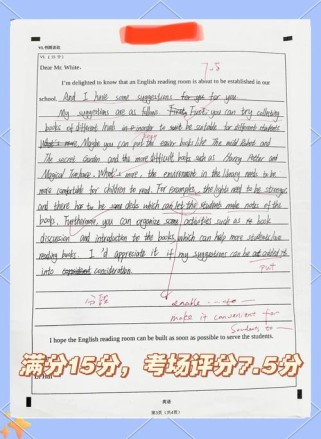 7.5
Dear Mr. White,
I'm delighted to know that an English reading room is about to be established in our
school. And I have some suggestions for you for you.
My suggestions are as follows. Firstly, First, you can try collecting
books of different levels in order to be suitable for different students.
What's more, Maybe you can put the easier books like The Wild Robot and
The Secret Garden and the most difficult books such as Harry Potter and
Magical Treehouse. What's more, the environment in the library needs to be
more comfortable for children to read. For examples, the lights need to be stronger
and there has to be some desks which can let the students make notes of the
books. Furthermore, you can organize some activities such as book
discussion and introduction to the books, which can help more students love
reading books. I'd appreciate it if my suggestions can be added to
into consideration.
put
分段
enable
make it convenient for
students to
满分15分，考场评分7.5分
I hope the English reading room can be built as soon as possible to serve the students.
英语